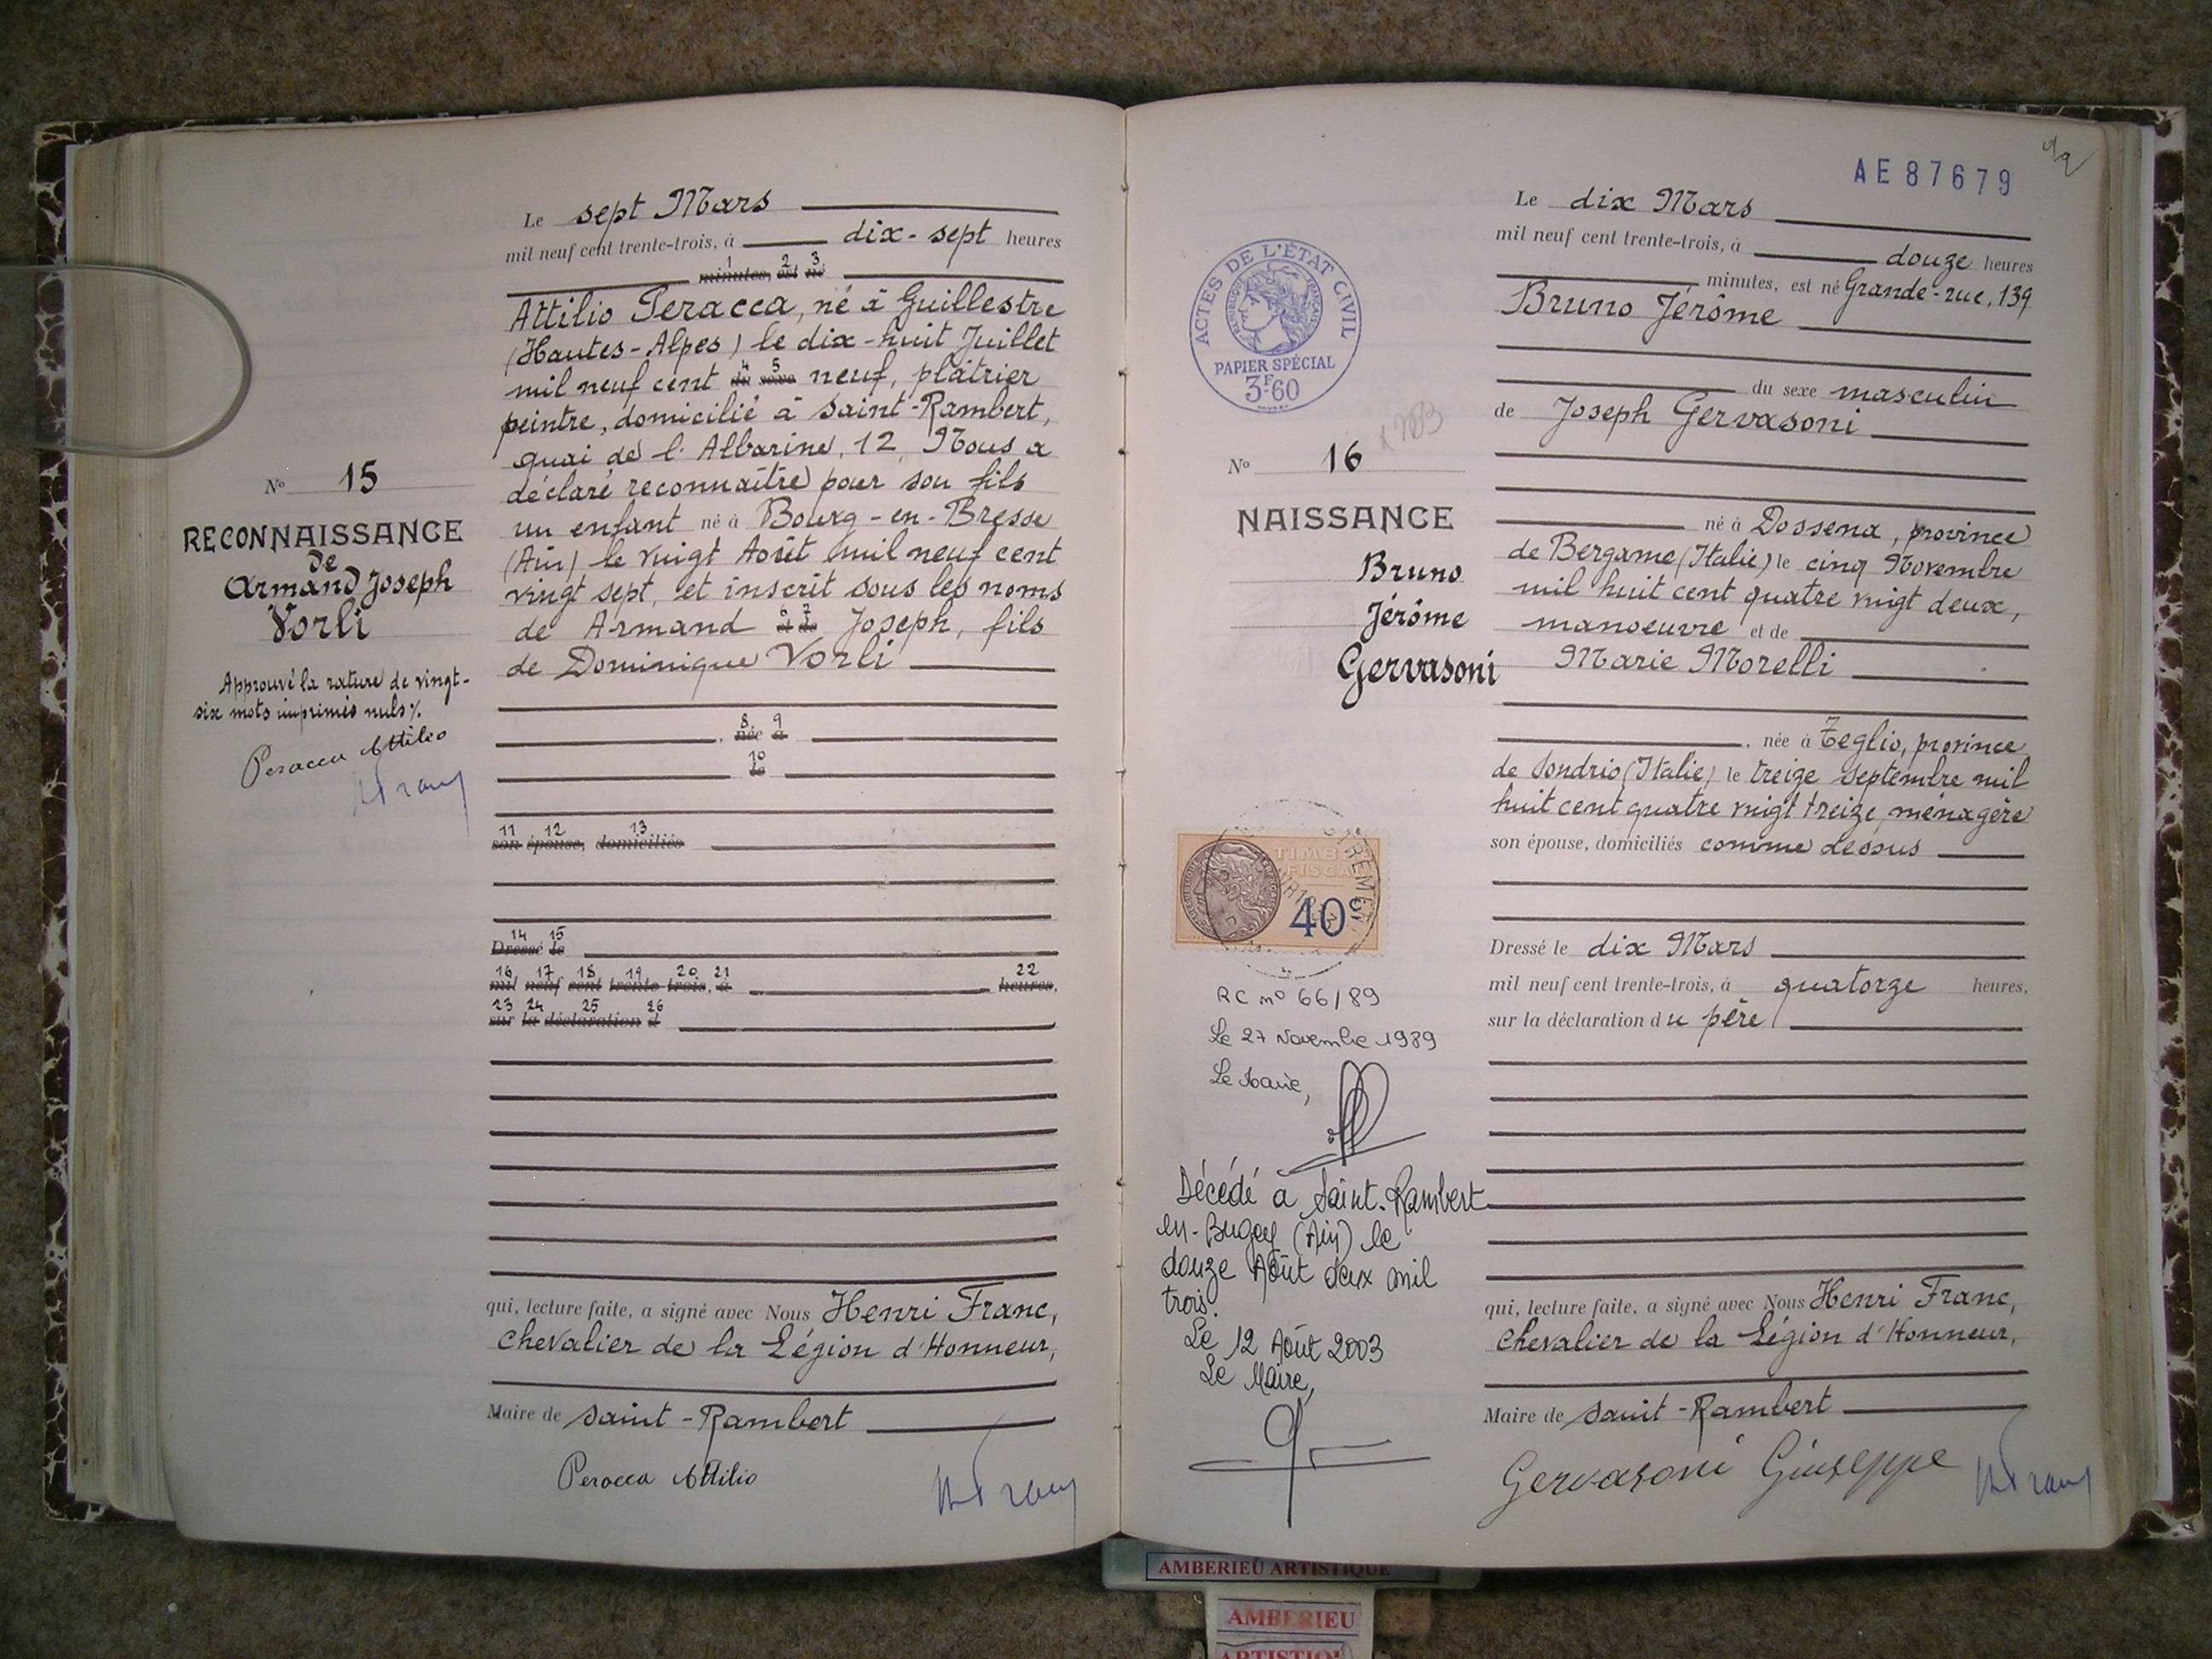 Le sept Mars
mil neuf cent trente-trois, à dix-sept heures
1 2 3
minutes, est né
Attilio Peracca, né à Guillestre
(Hautes-Alpes) le dix-huit Juillet
4 5
mil neuf cent du sexe neuf, plâtrier
peintre, domicilié à Saint-Rambert,
quai de l'Albarine, 12, Nous a
déclaré reconnaître pour son fils
un enfant né à Bourg-en-Bresse
(Ain) le vingt Août mil neuf cent
vingt sept, et inscrit sous les noms
6 7
de Armand Joseph, fils
de Dominique Vorli
8 9
, née à
10
le
11 12 13
son épouse, domiciliés
14 15
Dressé le
16 17 18 19 20 21 22
mil neuf cent trente-trois, à heures,
23 24 25 26
sur la déclaration d
qui, lecture faite, a signé avec Nous Henri Franc,
Chevalier de la Légion d'Honneur,
Maire de Saint-Rambert
Peracca Attilio
No 15
RECONNAISSANCE
de
Armand Joseph
Vorli
Approuvé la rature de vingt-
six mots imprimés nuls %.
Peracca Attilio
AE87679
Le dix Mars
mil neuf cent trente-trois, à douze heures
minutes, est né Grande-rue, 139
Bruno Jérôme
du sexe masculin
de Joseph Gervasoni
né à Dossena, province
de Bergame (Italie) le cinq Novembre
mil huit cent quatre vingt deux,
manoeuvre et de
Marie Morelli
, née à Teglio, province
de Sondrio (Italie) le treize Septembre mil
huit cent quatre vingt treize, ménagère
son épouse, domiciliés comme dessus
Dressé le dix Mars
mil neuf cent trente-trois, à quatorze heures,
sur la déclaration du père
qui, lecture faite, a signé avec Nous Henri Franc,
Chevalier de la Légion d'Honneur,
Maire de Saint-Rambert
Gervasoni Giuseppe
ACTES DE L'ÉTAT CIVIL
RÉPUBLIQUE FRANÇAISE
PAPIER SPÉCIAL
3F.60
No 16
NAISSANCE
Bruno
Jérôme
Gervasoni
TIMBRE
FISCAL
40c
RC no 66/89
Le 27 Novembre 1989
Le Maire,
Décédé à Saint-Rambert
en-Bugey (Ain) le
douze Août deux mil
trois.
Le 12 Août 2003
Le Maire,
AMBERIEU ARTISTIQUE
AMBERIEU
ARTISTIQUE